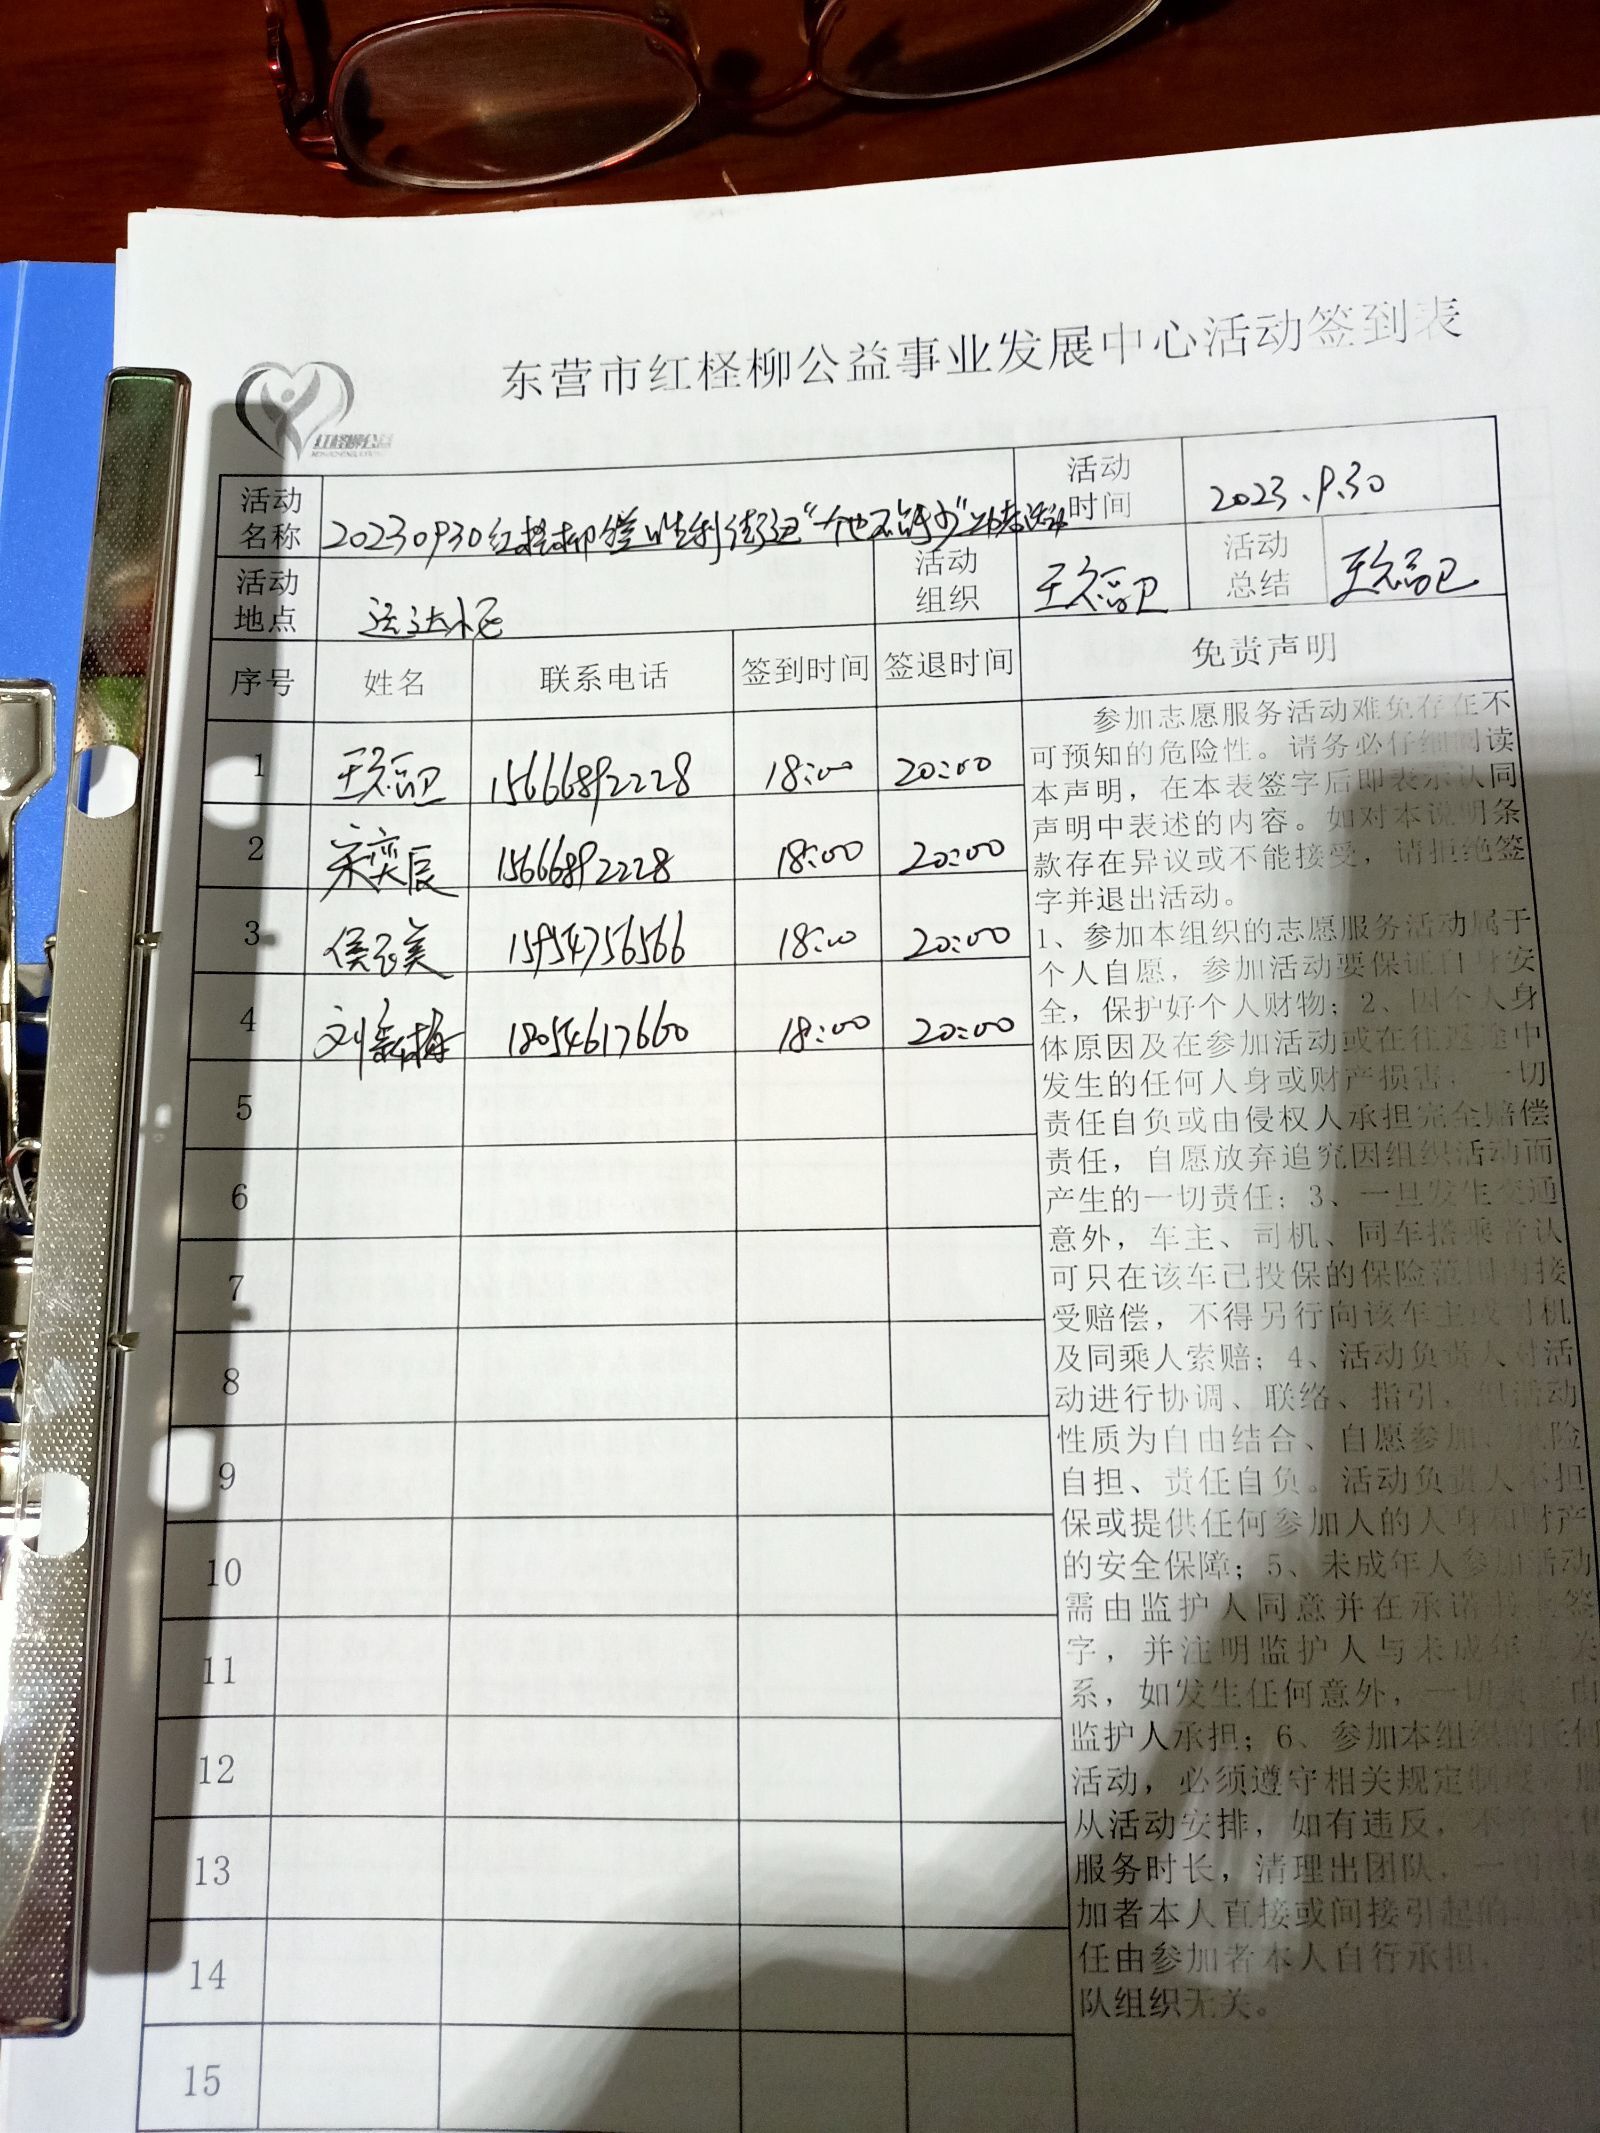 东营市红柽柳公益事业发展中心活动签到表
红柽柳公益
活动名称
活动时间
2023.9.30
活动地点
运达小区
活动组织
活动总结
序号 姓名 联系电话 签到时间 签退时间 免责声明
1 15666892228 18:00 20:00
2 宋奕辰 15666892228 18:00 20:00
3 侯 美 15954756566 18:00 20:00
4 刘新梅 18054617660 18:00 20:00
5
6
7
8
9
10
11
12
13
14
15
参加志愿服务活动难免存在不
可预知的危险性。请务必仔细阅读
本声明，在本表签字后即表示认同
声明中表述的内容。如对本说明条
款存在异议或不能接受，请拒绝签
字并退出活动。
1、参加本组织的志愿服务活动属于
个人自愿，参加活动要保证自身安
全，保护好个人财物；2、因个人身
体原因及在参加活动或在往返途中
发生的任何人身或财产损害，一切
责任自负或由侵权人承担完全赔偿
责任，自愿放弃追究因组织活动而
产生的一切责任；3、一旦发生交通
意外，车主、司机、同车搭乘者认
可只在该车已投保的保险范围内接
受赔偿，不得另行向该车主或司机
及同乘人索赔；4、活动负责人对活
动进行协调、联络、指引，但活动
性质为自由结合、自愿参加、风险
自担、责任自负。活动负责人不担
保或提供任何参加人的人身和财产
的安全保障；5、未成年人参加活动
需由监护人同意并在承诺书上签
字，并注明监护人与未成年人关
系，如发生任何意外，一切 由
监护人承担；6、参加本组织的任何
活动，必须遵守相关规定制度，服
从活动安排，如有违反，不
服务时长，清理出团队，一
加者本人直接或间接引起的
任由参加者本人自行承担，
队组织无关。